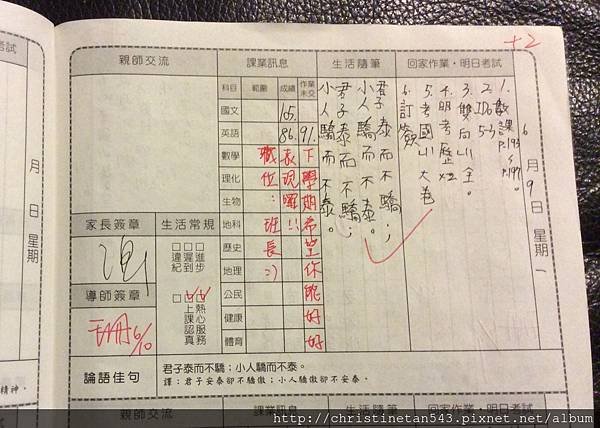 考試
月
日
星期
精神。
+2
親師交流
課業訊息
生活隨筆
回家作業・明日考試
科目
範圍
成績
作業未交
國文
105.
英語
86. 91.
數學
理化
生物
地科
歷史
地理
公民
健康
體育
下學期希望你能好好
表現喔!!
職位:班長:)
君子泰而不驕;
小人驕而不泰。
君子泰而不驕;
小人驕而不泰。
1. 數課P.193~P.199。
3. 雙向山全。
4. 明考歷x2
5. 考國山大卷
6. 訂簽
6月9日 星期一
家長簽章
生活常規
□進步
□遲到
□違紀
導師簽章
□熱心服務
□上課認真
6/10
論語佳句
君子泰而不驕;小人驕而不泰。
譯:君子安泰卻不驕傲;小人驕傲卻不安泰。
親師交流
課業訊息
生活隨筆
回家作業・明日考試
http://christinetan543.pixnet.net/album